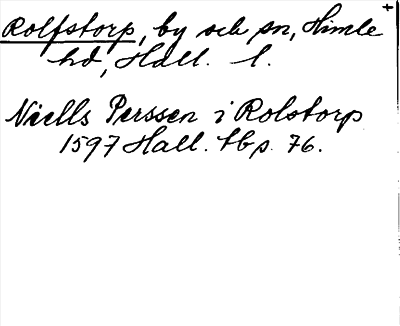 Rolfstorp, by och sn, Himle
hd, Hall. l.
Niells Perssen i Rolstorp
1597 Hall. tb p. 76.